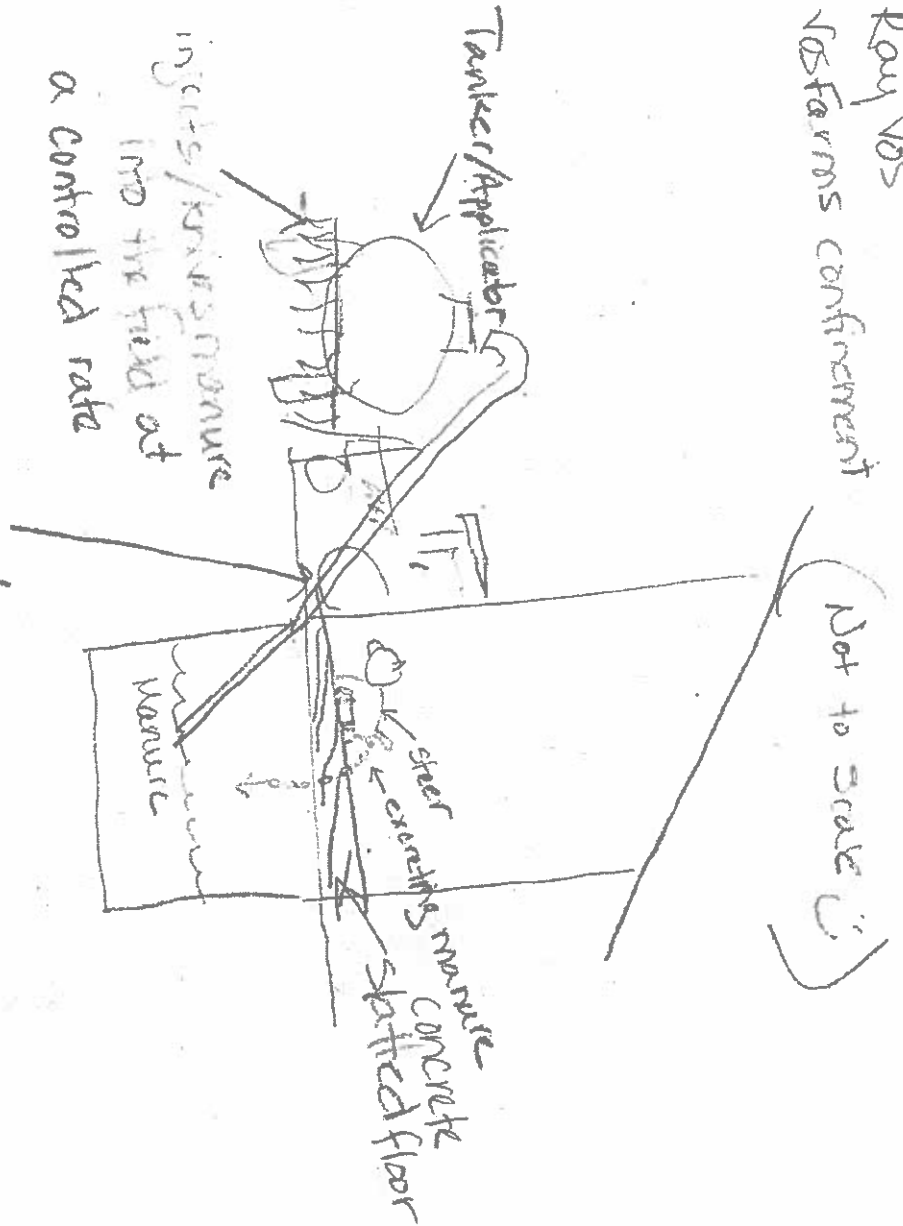 Ray Vos
Vos Farms confinement
(Not to scale ☺)
Tanker/Applicator
injects/knives manure
into the field at
a controlled rate
steer
excreting manure
concrete
slatted floor
Manure